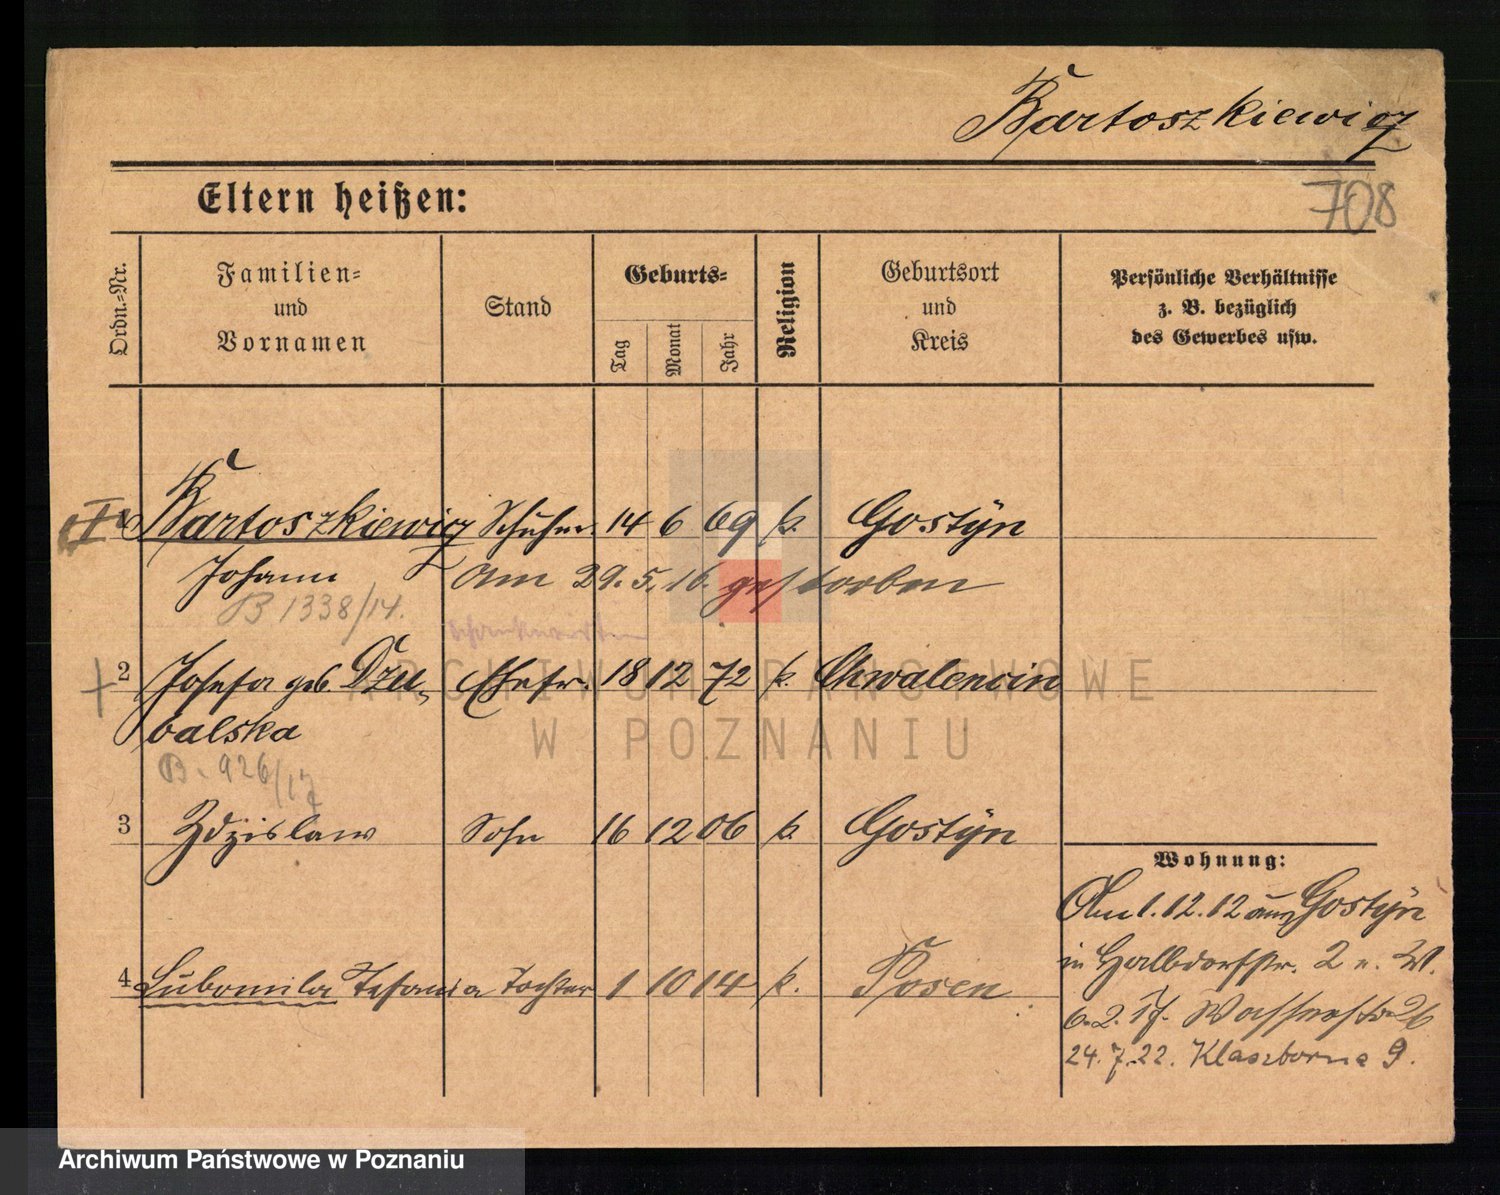 Bartoszkiewicz
Eltern heißen:
708
Ordn.-Nr.
Familien-
und
Vornamen
Stand
Geburts-
Tag
Monat
Jahr
Religion
Geburtsort
und
Kreis
Persönliche Verhältnisse
z. B. bezüglich
des Gewerbes usw.
1 Bartoszkiewicz Schuhm. 14 6 69 k. Gostÿn
Johann Am 29.5.16. gestorben
B 1338/14.
2 Josefa geb. Dzu- Ehefr. 18 12 72 k. Chwalencin
balska
B. 926/17
3 Zdzislaw Sohn 16 12 06 k. Gostÿn
4 Lubomila Stefania Tochter 1 10 14 k. Posen
Wohnung:
Am 1.12.12 aus Gostÿn
in Halbdorfstr. 2 v. W.
6.2.17. Wasserstr. 26
24.7.22. Klasztorna 9.
ARCHIWUM PAŃSTWOWE
W POZNANIU
Archiwum Państwowe w Poznaniu